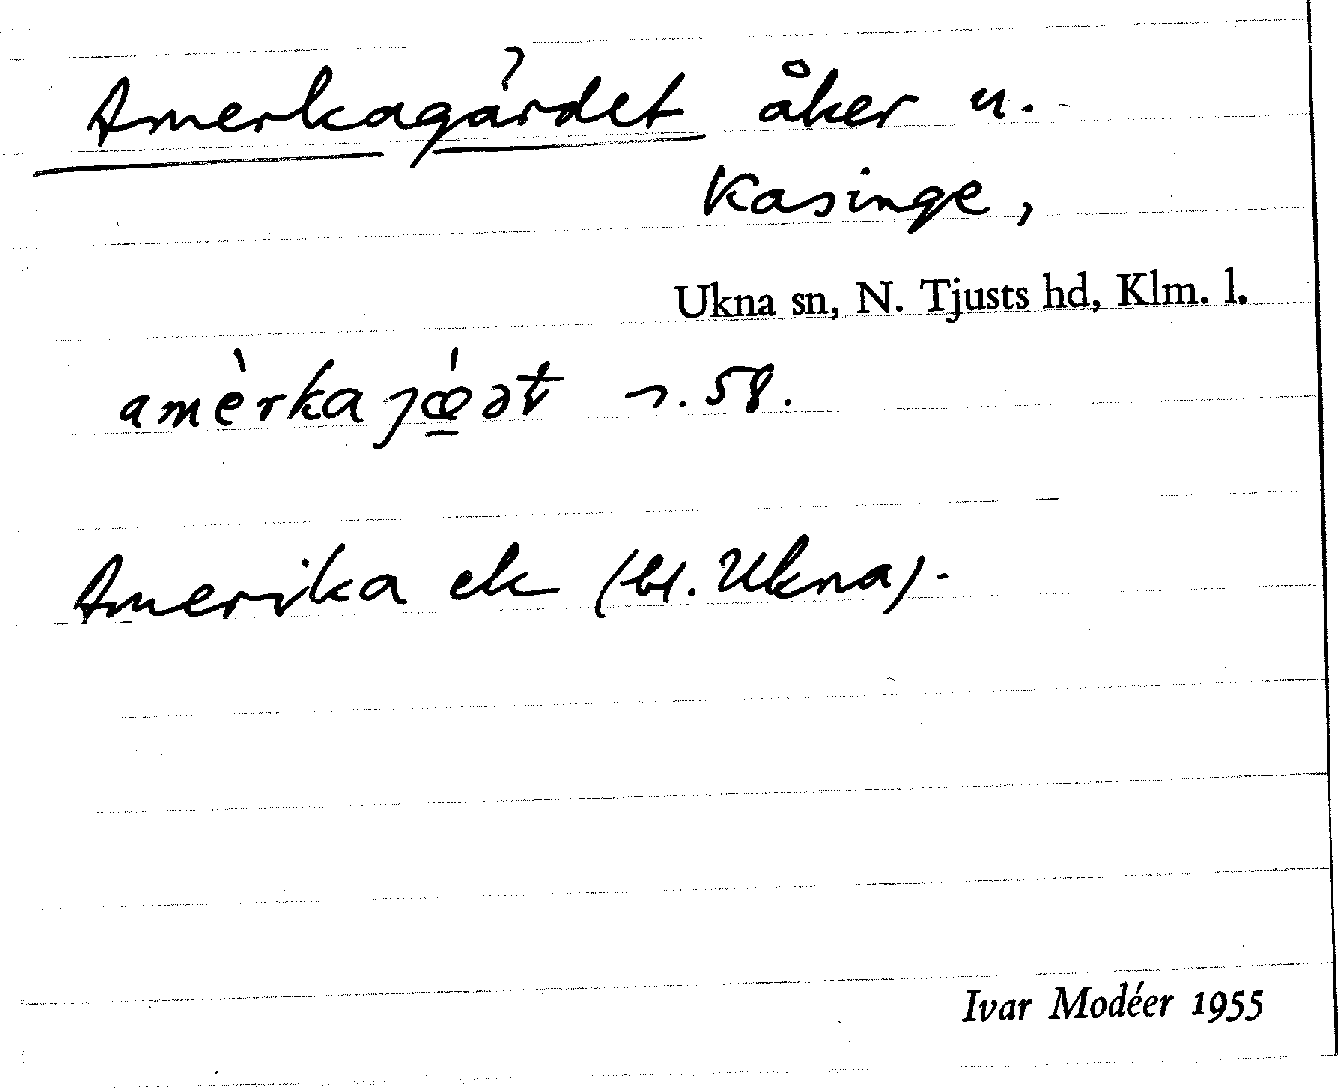 Amerkagärdet åker u.
Kasinge,
Ukna sn, N. Tjusts hd, Klm. l.
amèrkajǽ̲ət s. 58.
Amerika ek (bl. Ukna).
Ivar Modéer 1955